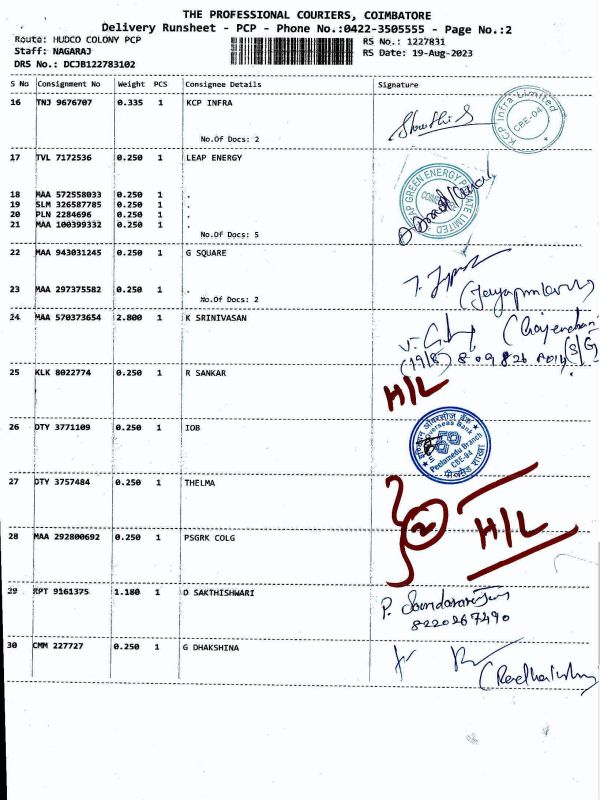 THE PROFESSIONAL COURIERS, COIMBATORE
Delivery Runsheet - PCP - Phone No.:0422-3505555 - Page No.:2
Route: HUDCO COLONY PCP RS No.: 1227831
Staff: NAGARAJ RS Date: 19-Aug-2023
DRS No.: DCJB122783102
S No Consignment No Weight PCS Consignee Details Signature
16 TNJ 9676707 0.335 1 KCP INFRA
KCP Infra Limited
CBE-04
No.Of Docs: 2
17 TVL 7172536 0.250 1 LEAP ENERGY
18 MAA 572558033 0.250 1 .
19 SLM 326587785 0.250 1 .
20 PLN 2284696 0.250 1 .
21 MAA 100399332 0.250 1 .
No.Of Docs: 5
22 MAA 943031245 0.250 1 G SQUARE
23 MAA 297375582 0.250 1 .
No.Of Docs: 2
24 MAA 570373654 2.800 1 K SRINIVASAN
25 KLK 8022774 0.250 1 R SANKAR
H/L
26 DTY 3771109 0.250 1 IOB
Overseas Bank
Peelamedu Branch
CBE-04
27 DTY 3757484 0.250 1 THELMA
2 H/L
28 MAA 292800692 0.250 1 PSGRK COLG
29 RPT 9161375 1.180 1 D SAKTHISHWARI
8220267490
30 CMM 227727 0.250 1 G DHAKSHINA